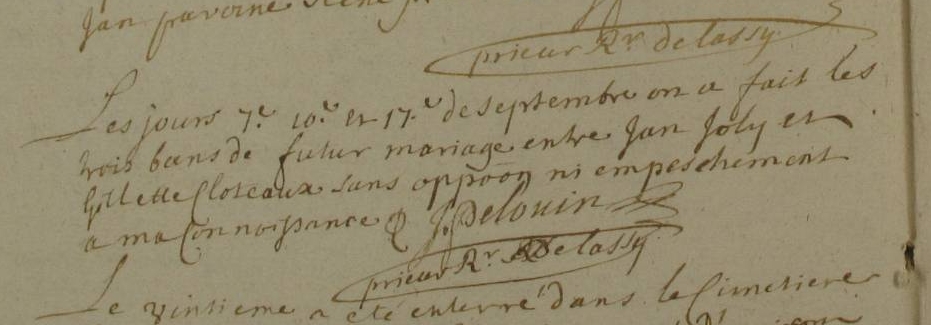 Jan
prieur Rr delassy
Les jours 7e. 10e. et 17.e de septembre on a fait les
trois bans de futur mariage entre Jan Joly et
Gillette Cloteaux sans oppoon ni empeschement
a ma Connoissance J. Delouin
prieur Rr. Delassy.
Le vintieme a eté enterré dans le Cimetiere